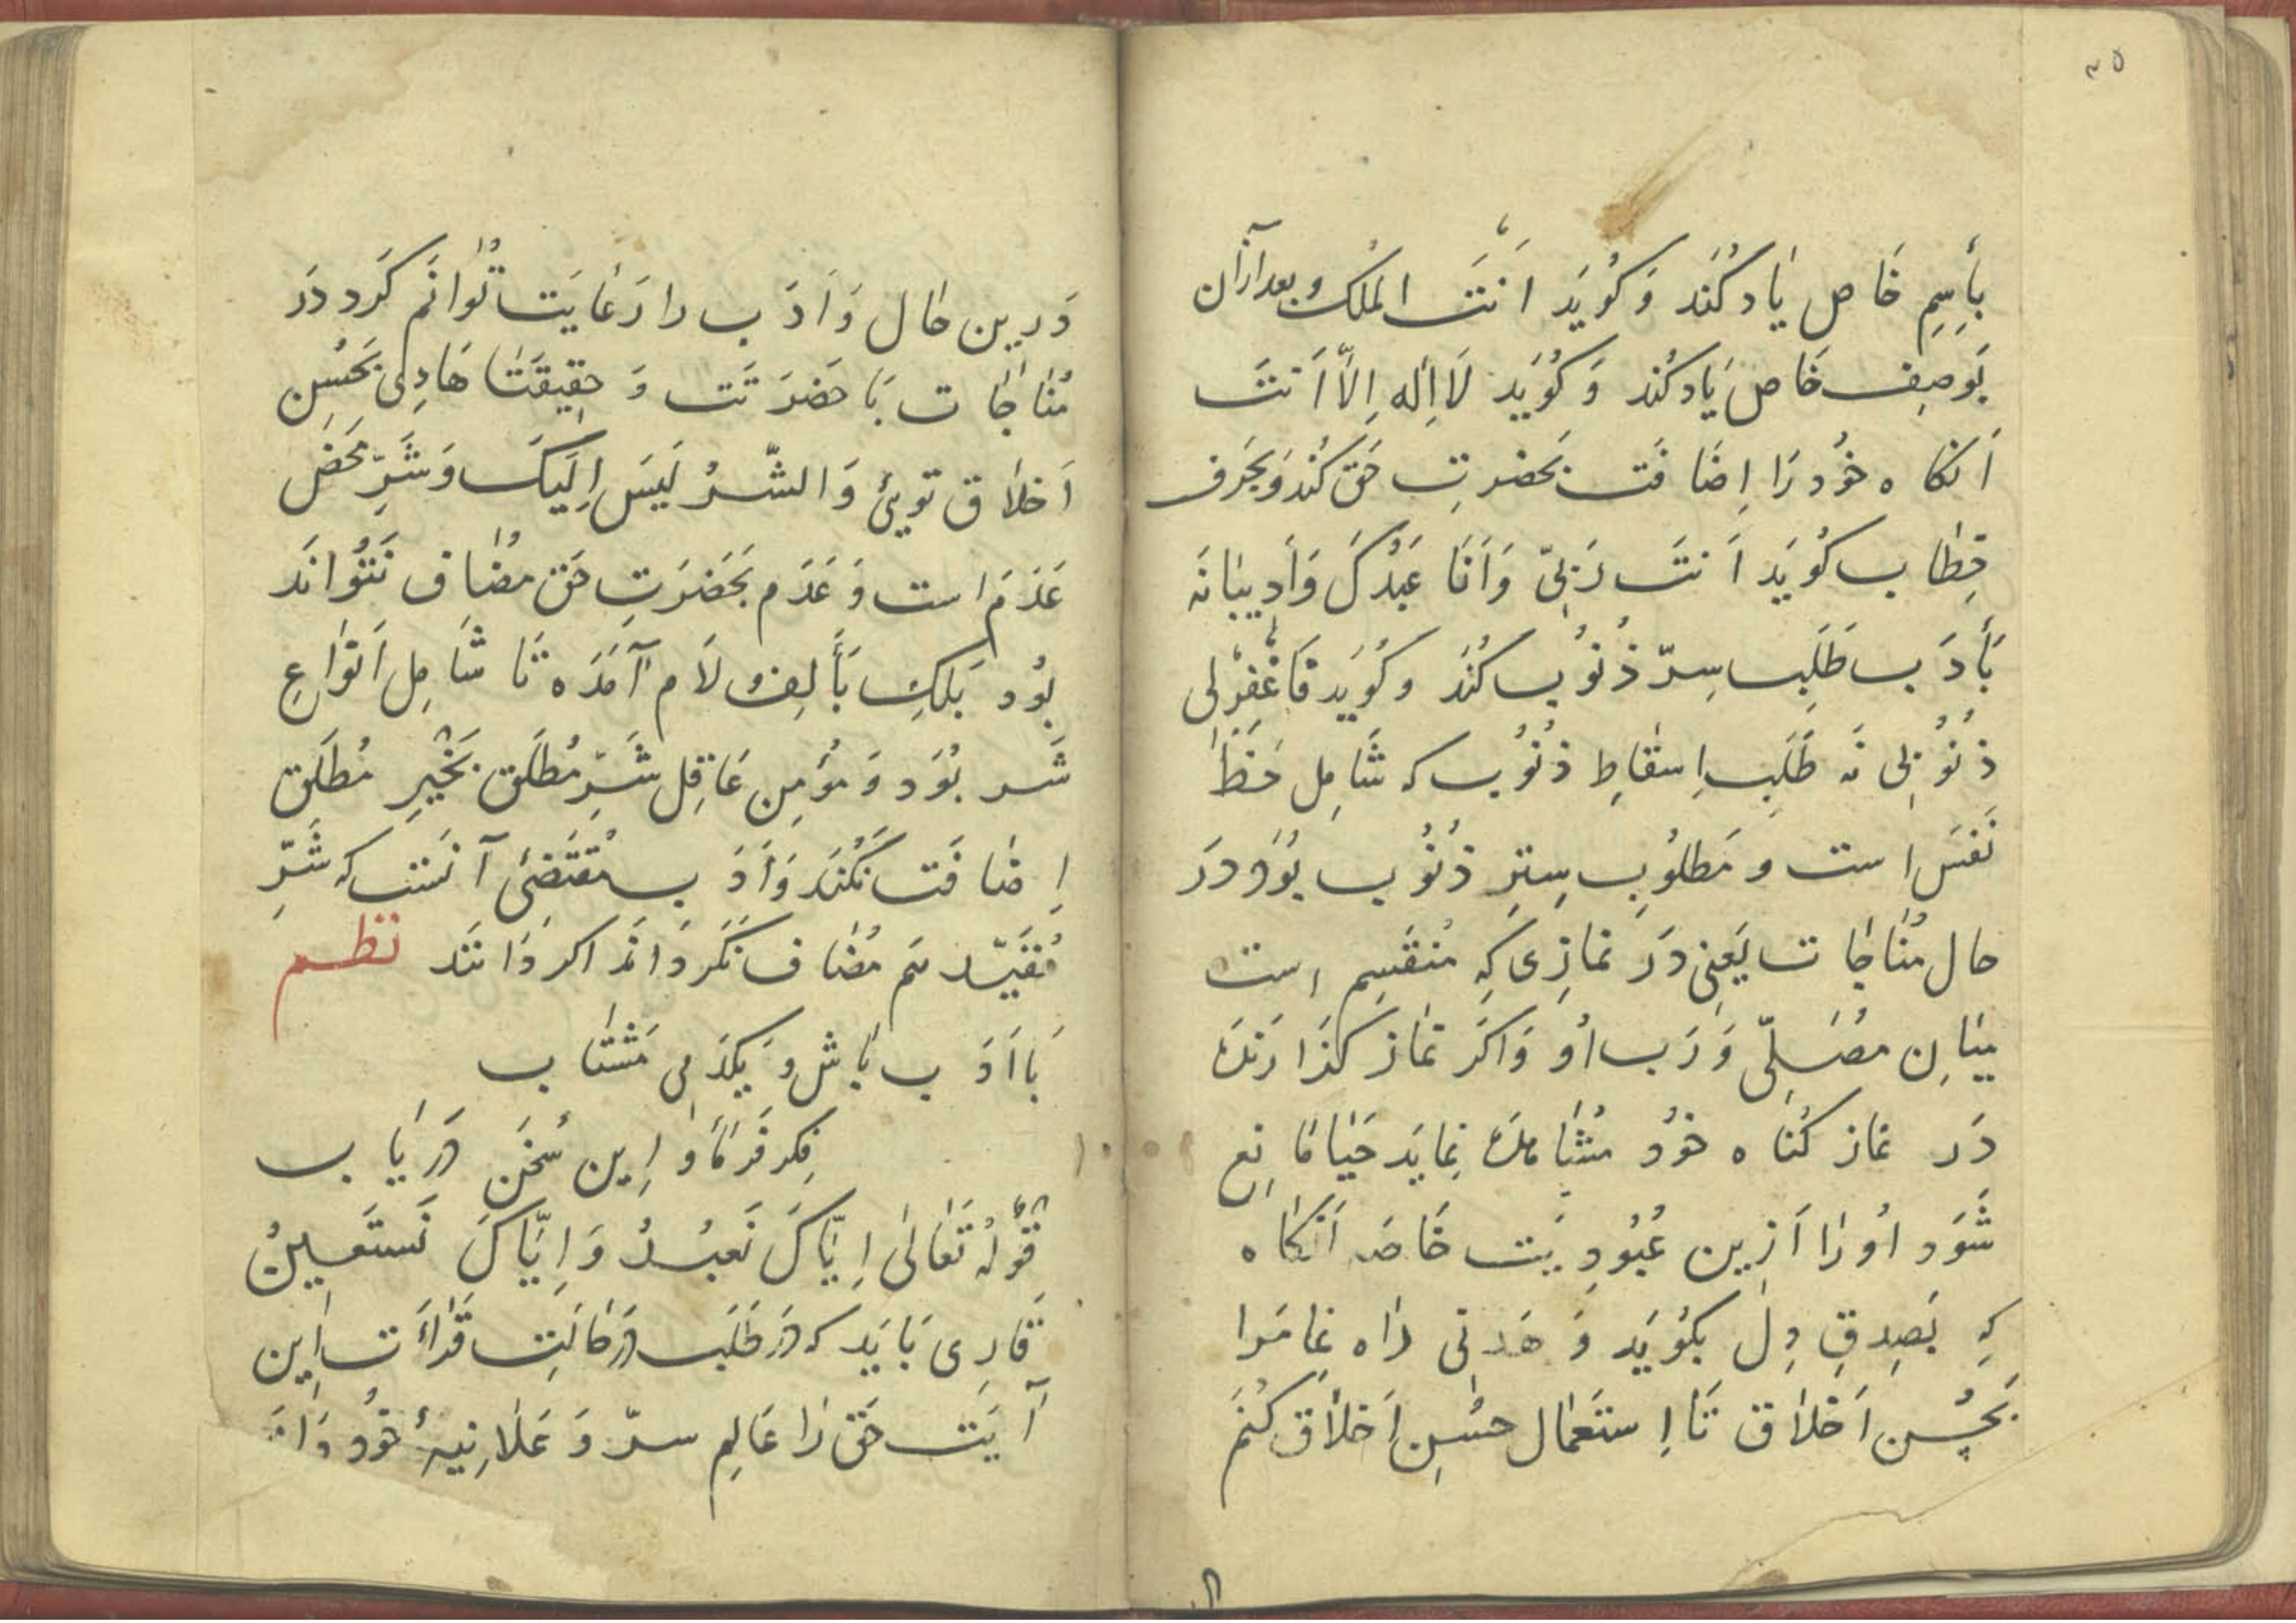 ۳۵
بِأِسِمِ خَاص یٰادکُنَد وَکُویَد اَنْتَ الملکُ وبعدازآن
بَوصِف خَاص یَادکُند وَکُویَد لَا اِلٰه اِلّا اَنتَ
اَنکاه خوُد رَا اِضَافَت بَحضرتِ حَق کُند وَبحَرفِ
خِطٰاب کوُیَد اَنتَ رَبّی وَاَنَا عَبدُکَ وَاَدِیبٰانَه
بَأدَب طَلَبِ سِرّ ذُنوُب کُنَد وکوُیَد فَاغْفِرْلی
ذُنوُبی نَه طَلَبِ اِسقٰاطِ ذُنوُب که شَامِل حَظّٰ
نَفسَ است و مَطلوُبِ سِترِ ذُنوُب بوُوَد دَر
حال مُنٰاجٰات یَعنِی دَر نمازِی کِه مُنقَسِم است
میٰانِ مُصَلِّی وَ رَب اوُ وَاکَر نَماز کذَارَنده
دَر نماز کُنٰاه خوُد مُشٰاهَده نِمایَد حَیٰا مَانِع
شَوَد اوُرٰا اَزِین عُبوُدِیَت خَاصَه اَنکاه
کِه بَصِدقِ دِل بکوُیَد وَ هَدنی رٰاه نِما مَرا
بحُسنِ اَخلاٰق تَا اِستَعمٰال حسُنِ اَخلاٰق کُنَم
دَرین حٰال وَاَدَب رٰا رَعٰایَت تُوٰانَم کَرد دَر
مُنٰاجٰات بَا حَضرَتَت وَ حِقِیقَتٰا هَادِی بحُسنِ
اَخلاٰق توییٔ وَالشّرُ لَیسَ اِلَیکَ وَشَرِّ مَحض
عَدَم است وَعَدَم بحَضرَتِ حَق مضُاف نَتُوانَد
بوُد بَلکِه بَألِف ولاَم آمَدَه تَا شَامِل اَنوٰاعِ
شَر بوُوَد وَموُمِن عَاقِل شَرِّ مُطلَق بَخَیرِ مُطلَق
اِضٰافَت نَکُنَد وَاَدَب مُقتَضیٔ آنَست که شَرِّ
مُقَیّد هَم مُضٰاف نَکَردَانَد اکر دَانَند نظم
بَا اَدَب بٰاش وَیکدَمی مَشتٰاب
فِکر فَرمٰا و اِین سُخَن دَریٰاب
قَولُه تَعٰالیٰ اِیّٰاکَ نَعبُدُ وَاِیّٰاکَ نَستَعِینُ
قَارِی بَایَد که دَر طَلَب دَر حٰالَتِ قَرٰاءَتِ اِین
آیَت حَق رٰا عَالِم سرّ وَ عَلاٰنِیهٔ خوُد